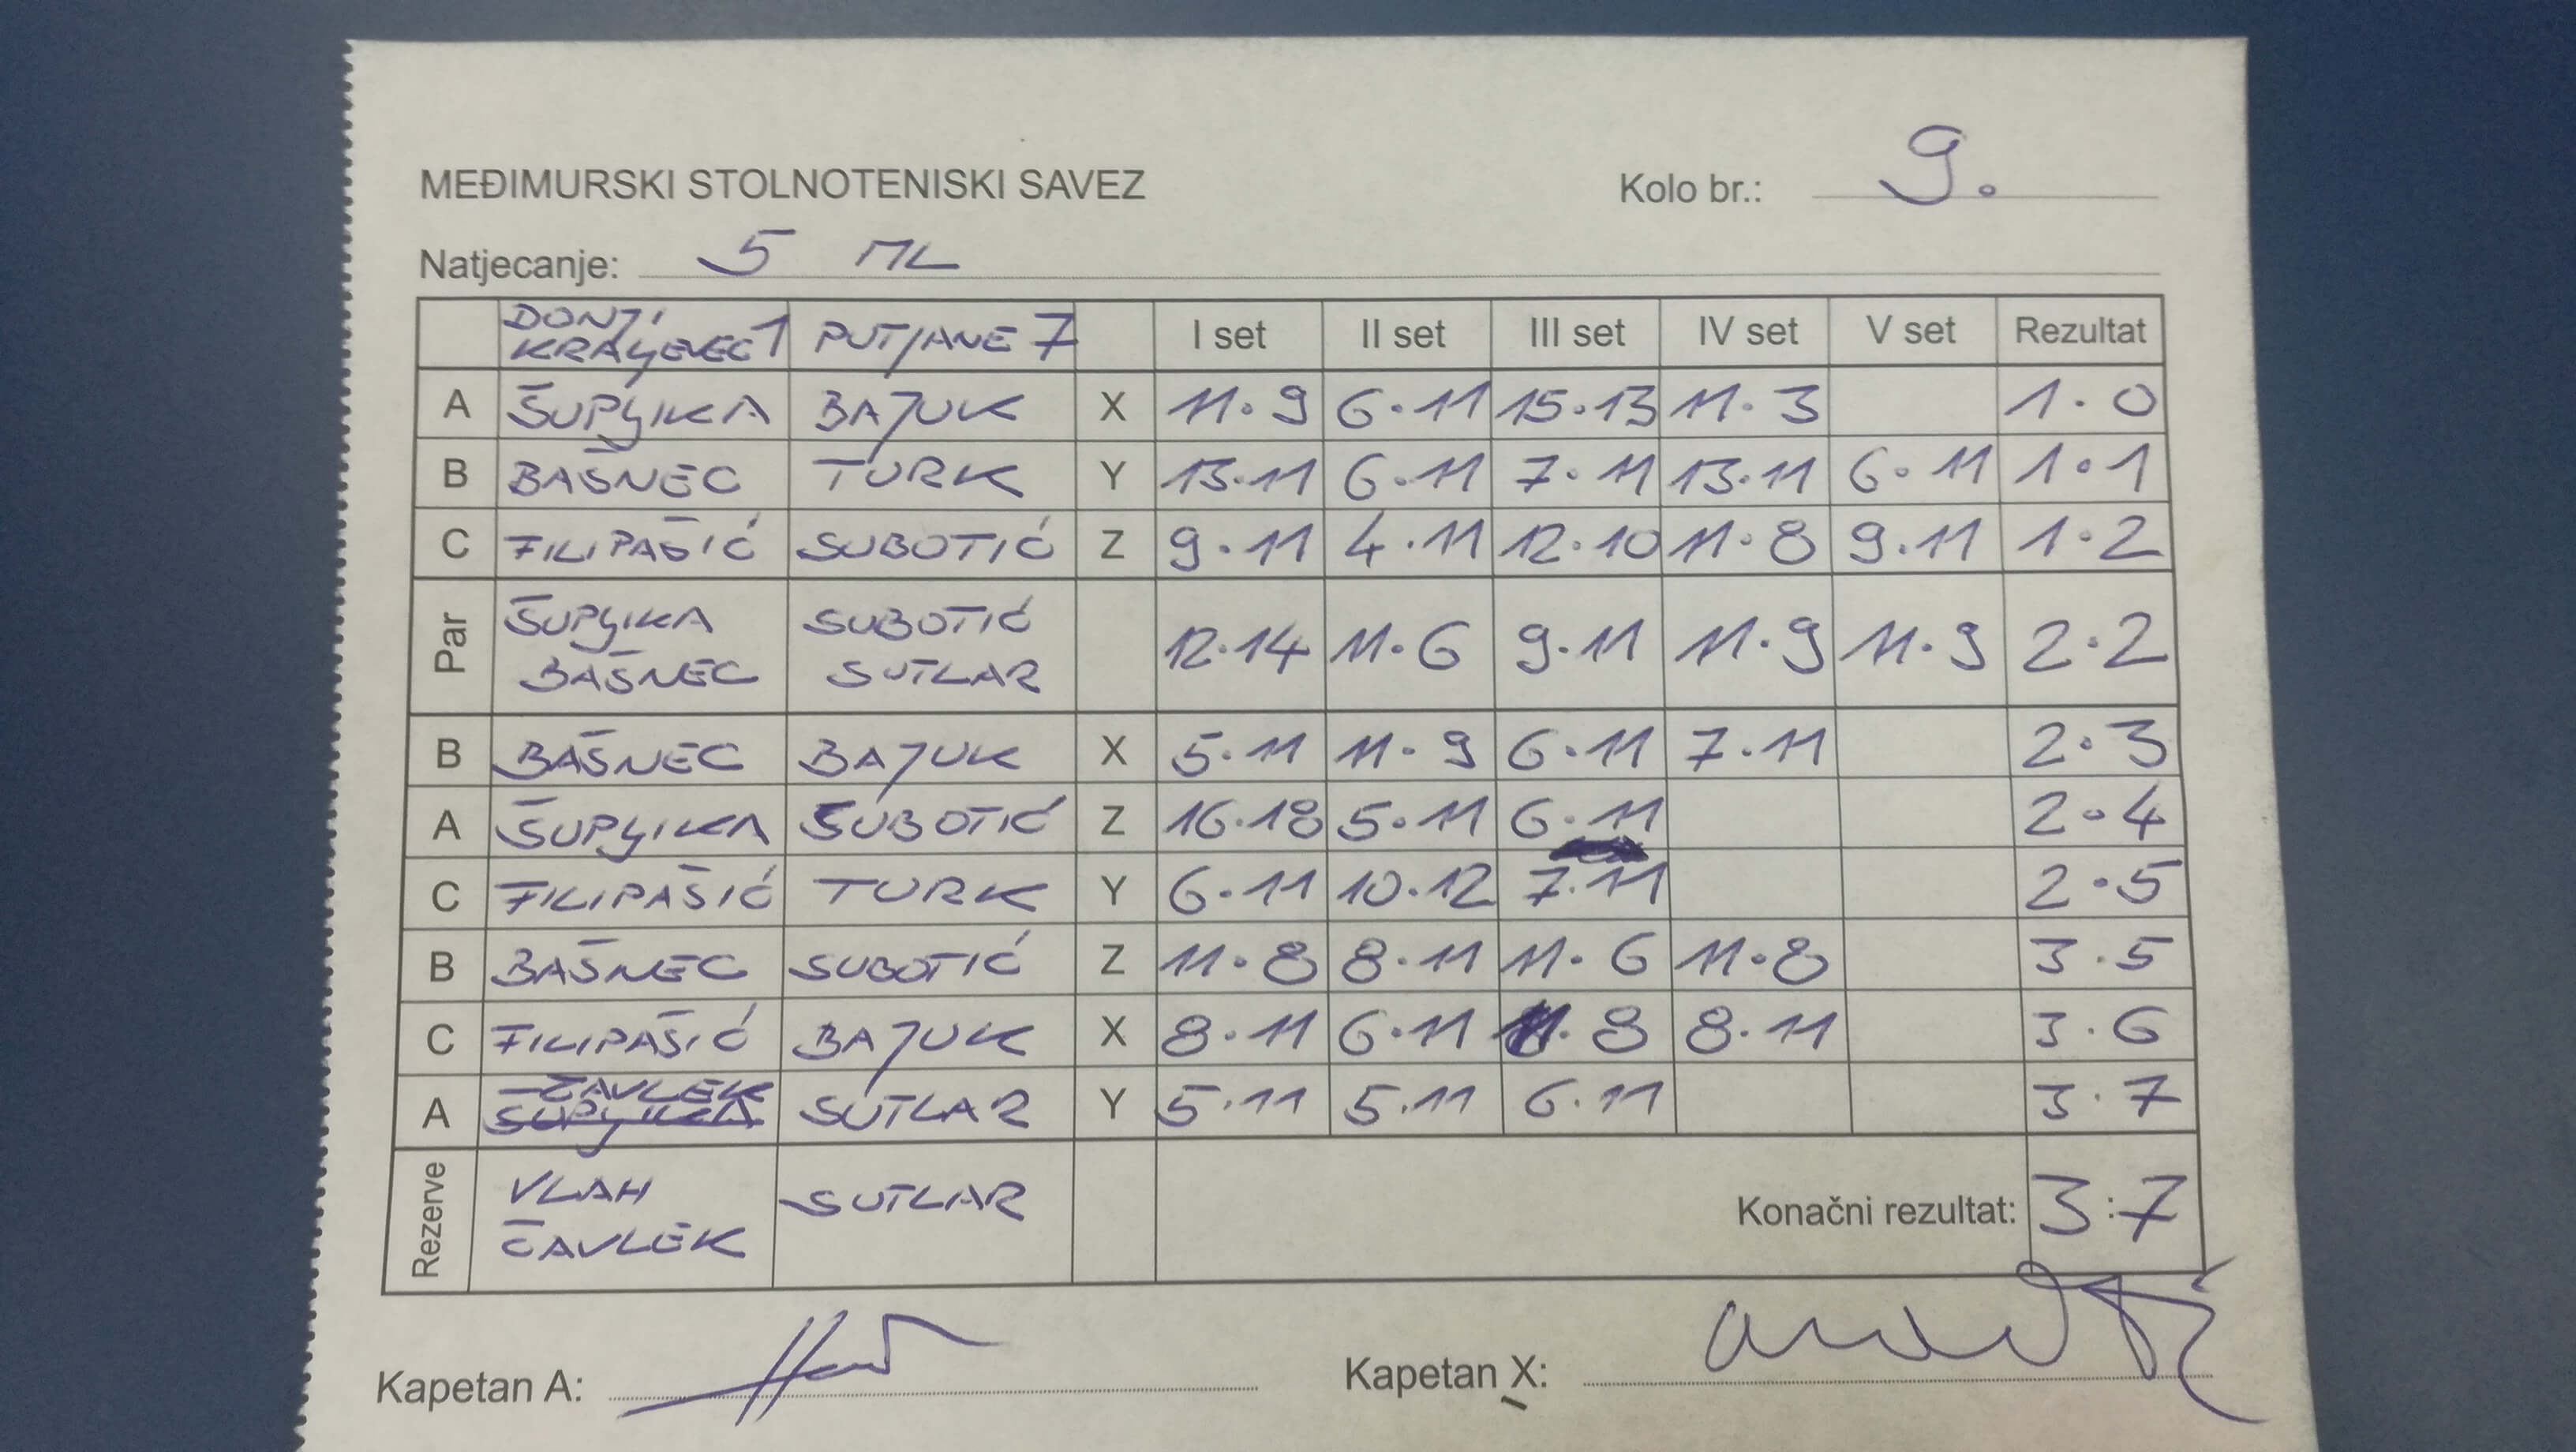 MEĐIMURSKI STOLNOTENISKI SAVEZ Kolo br.: 9.
Natjecanje: 5 ML
DONJI KRALJEVEC 1 PUTJANE 7 I set II set III set IV set V set Rezultat
A ŠUPLJIKA BAJUK X 11.9 6.11 15.13 11.3 1.0
B BAŠNEC TURK Y 13.11 6.11 7.11 13.11 6.11 1.1
C FILIPAŠIĆ SUBOTIĆ Z 9.11 4.11 12.10 11.8 9.11 1.2
Par ŠUPLJIKA SUBOTIĆ 12.14 11.6 9.11 11.9 11.9 2.2
BAŠNEC SUTLAR
B BAŠNEC BAJUK X 5.11 11.9 6.11 7.11 2.3
A ŠUPLJIKA SUBOTIĆ Z 16.18 5.11 6.11 2.4
C FILIPAŠIĆ TURK Y 6.11 10.12 7.11 2.5
B BAŠNEC SUBOTIĆ Z 11.8 8.11 11.6 11.8 3.5
C FILIPAŠIĆ BAJUK X 8.11 6.11 11.8 8.11 3.6
ČAVLEK
A ŠUPLJIKA SUTLAR Y 5.11 5.11 6.11 3.7
Rezerve VLAH SUTLAR Konačni rezultat: 3:7
ČAVLEK
Kapetan A: Kapetan X: